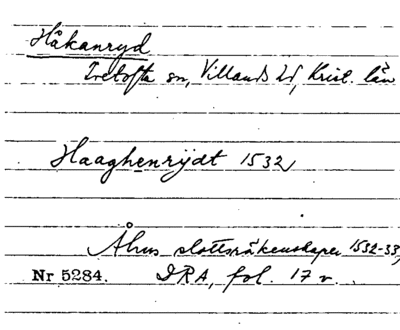 Håkanryd
Ivetofta sn, Villands hd, Krist. län
Haaghenrijdt 1532
Åhus slottsräkenskaper 1532-33,
Nr 5284. DRA, fol. 17 v.